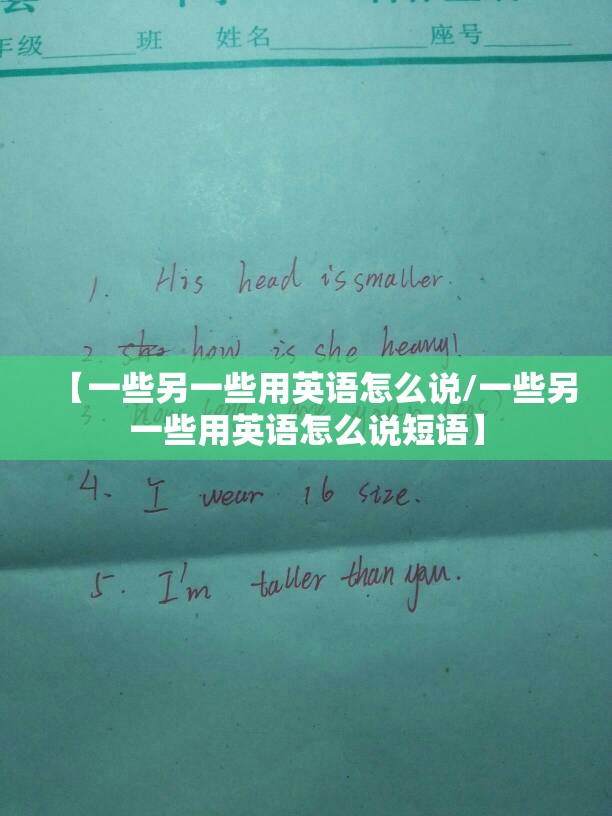 年级 班 姓名 座号
1. His head is smaller.
2. she how is she heavy!
【一些另一些用英语怎么说/一些另
一些用英语怎么说短语】
3.
4. I wear 16 size.
5. I'm taller than you.